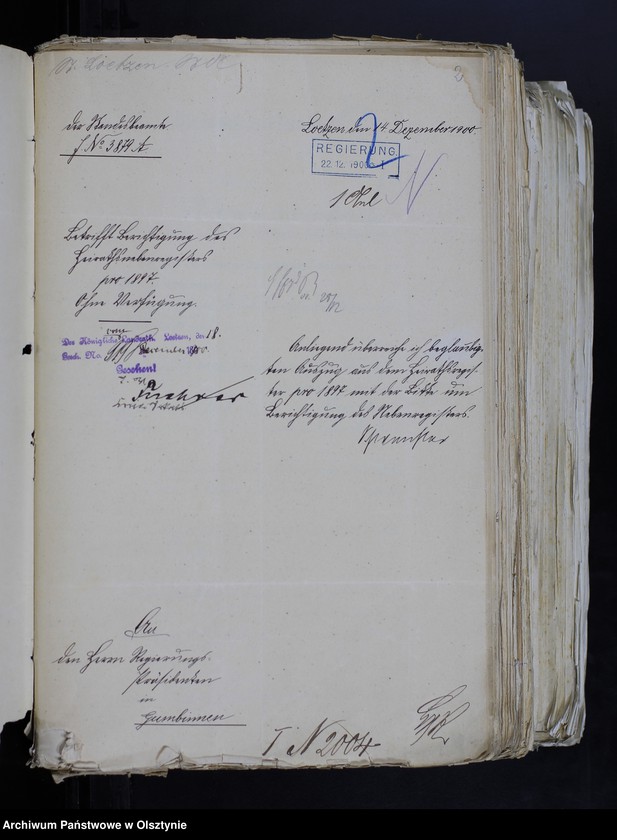 Loetzen
2
Der Standesbeamte
J. No 3874 A
Loetzen den 14. Dezember 1900
REGIERUNG
22.12.1900
1 Anl
Betrifft Berichtigung des
Heirathsnebenregisters
pro 1897.
Ohne Verfügung.
Der Königliche Landrath. Loetzen, den 18.
Gesch. No.
Gesehen!
Anliegend überreiche ich beglaubig-
ten Auszug aus dem Heirathsregis-
ter pro 1897 mit der Bitte um
Berichtigung des Nebenregisters.
An
den Herrn Regierungs-
Präsidenten
in
Gumbinnen
I N 2004
Archiwum Państwowe w Olsztynie